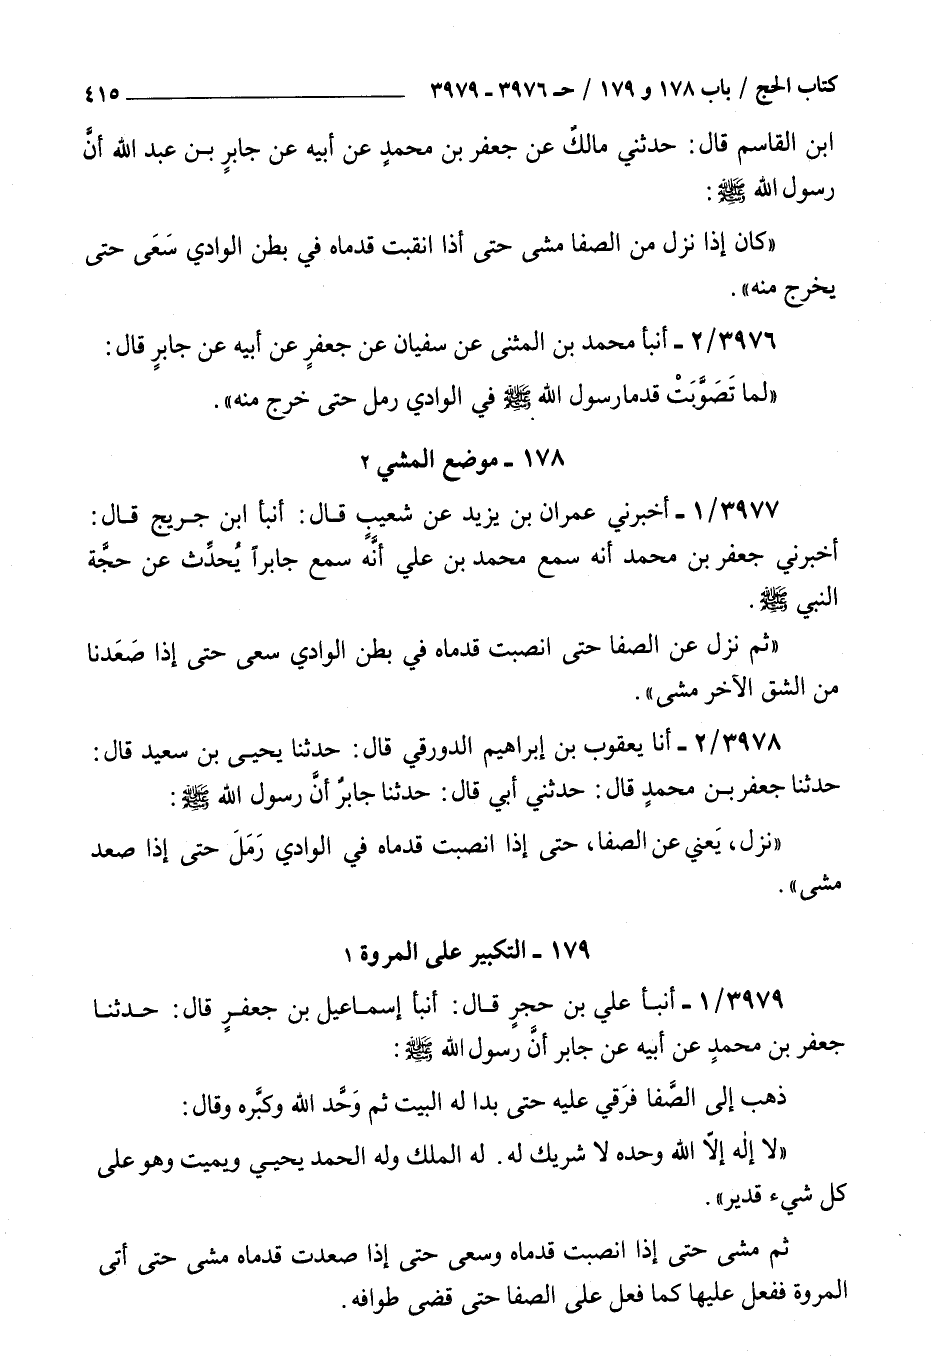 كتاب الحج / باب ١٧٨ و ١٧٩ / حـ ٣٩٧٦ - ٣٩٧٩ ٤١٥
ابن القاسم قال: حدثني مالكٌ عن جعفر بن محمدٍ عن أبيه عن جابرٍ بـن عبد الله أنَّ
رسول الله ﷺ:
«كان إذا نزل من الصفا مشى حتى أذا انقبت قدماه في بطن الوادي سَعَى حتى
يخرج منه».
٢/٣٩٧٦ - أنبأ محمد بن المثنى عن سفيان عن جعفرٍ عن أبيه عن جابرٍ قال:
«لما تَصَوَّبَتْ قدمارسول الله ﷺ في الوادي رمل حتى خرج منه».
١٧٨ - موضع المشي ٢
١/٣٩٧٧ - أخبرني عمران بن يزيد عن شعيبٍ قـال: أنبأ ابن جـريج قـال:
أخبرني جعفر بن محمد أنه سمع محمد بن علي أنَّه سمع جابراً يُحدِّث عن حجَّة
النبي ﷺ.
«ثم نزل عن الصفا حتى انصبت قدماه في بطن الوادي سعى حتى إذا صَعَدنا
من الشق الآخر مشى».
٢/٣٩٧٨ - أنا يعقوب بن إبراهيم الدورقي قال: حدثنا يحيـى بن سعيد قال:
حدثنا جعفر بـن محمدٍ قال: حدثني أبي قال: حدثنا جابرٌ أنَّ رسول الله ﷺ:
«نزل، يَعني عن الصفا، حتى إذا انصبت قدماه في الوادي رَمَلَ حتى إذا صعد
مشى».
١٧٩ - التكبير على المروة ١
١/٣٩٧٩ - أنبـأ علي بن حجرٍ قـال: أنبأ إسمـاعيل بن جعفـرٍ قال: حـدثنـا
جعفر بن محمدٍ عن أبيه عن جابر أنَّ رسول الله ﷺ:
ذهب إلى الصَّفا فرَقي عليه حتى بدا له البيت ثم وَحَّد الله وكبَّره وقال:
«لا إلٰه إلّا الله وحده لا شريك له. له الملك وله الحمد يحيـي ويميت وهو على
كل شيء قدير».
ثم مشى حتى إذا انصبت قدماه وسعى حتى إذا صعدت قدماه مشى حتى أتى
المروة ففعل عليها كما فعل على الصفا حتى قضى طوافه.